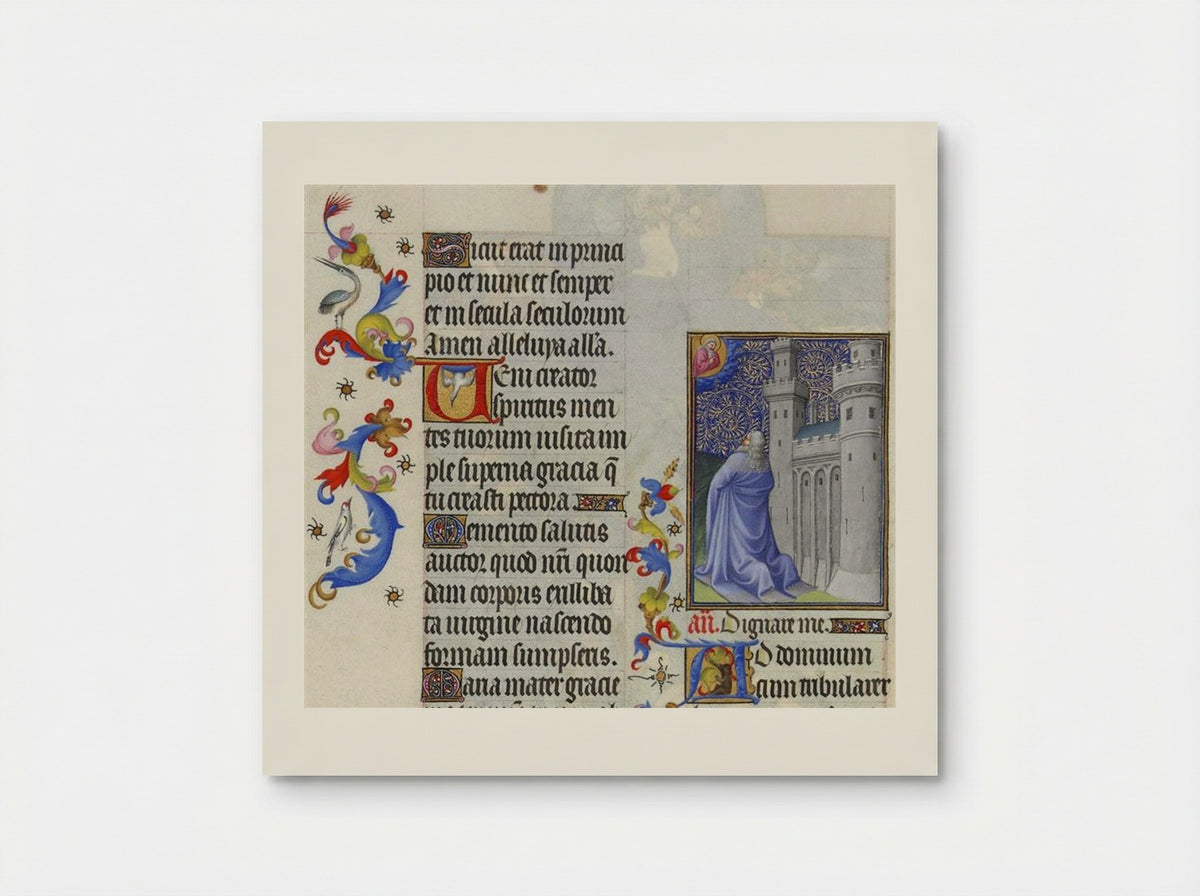 Sicut erat in princi
pio et nunc et semper
et in secula seculorum
Amen alleluya all̄a.
Ueni creator
spiritus men
tes tuorum uisita im
ple superna gracia q̄
tu creasti pectora.
Memento salutis
auctor quod nr̄i quon
dam corporis ex illiba
ta uirgine nascendo
formam sumpseris.
Maria mater gracie
an̄. Dignare me.
AD dominum
cum tribularer